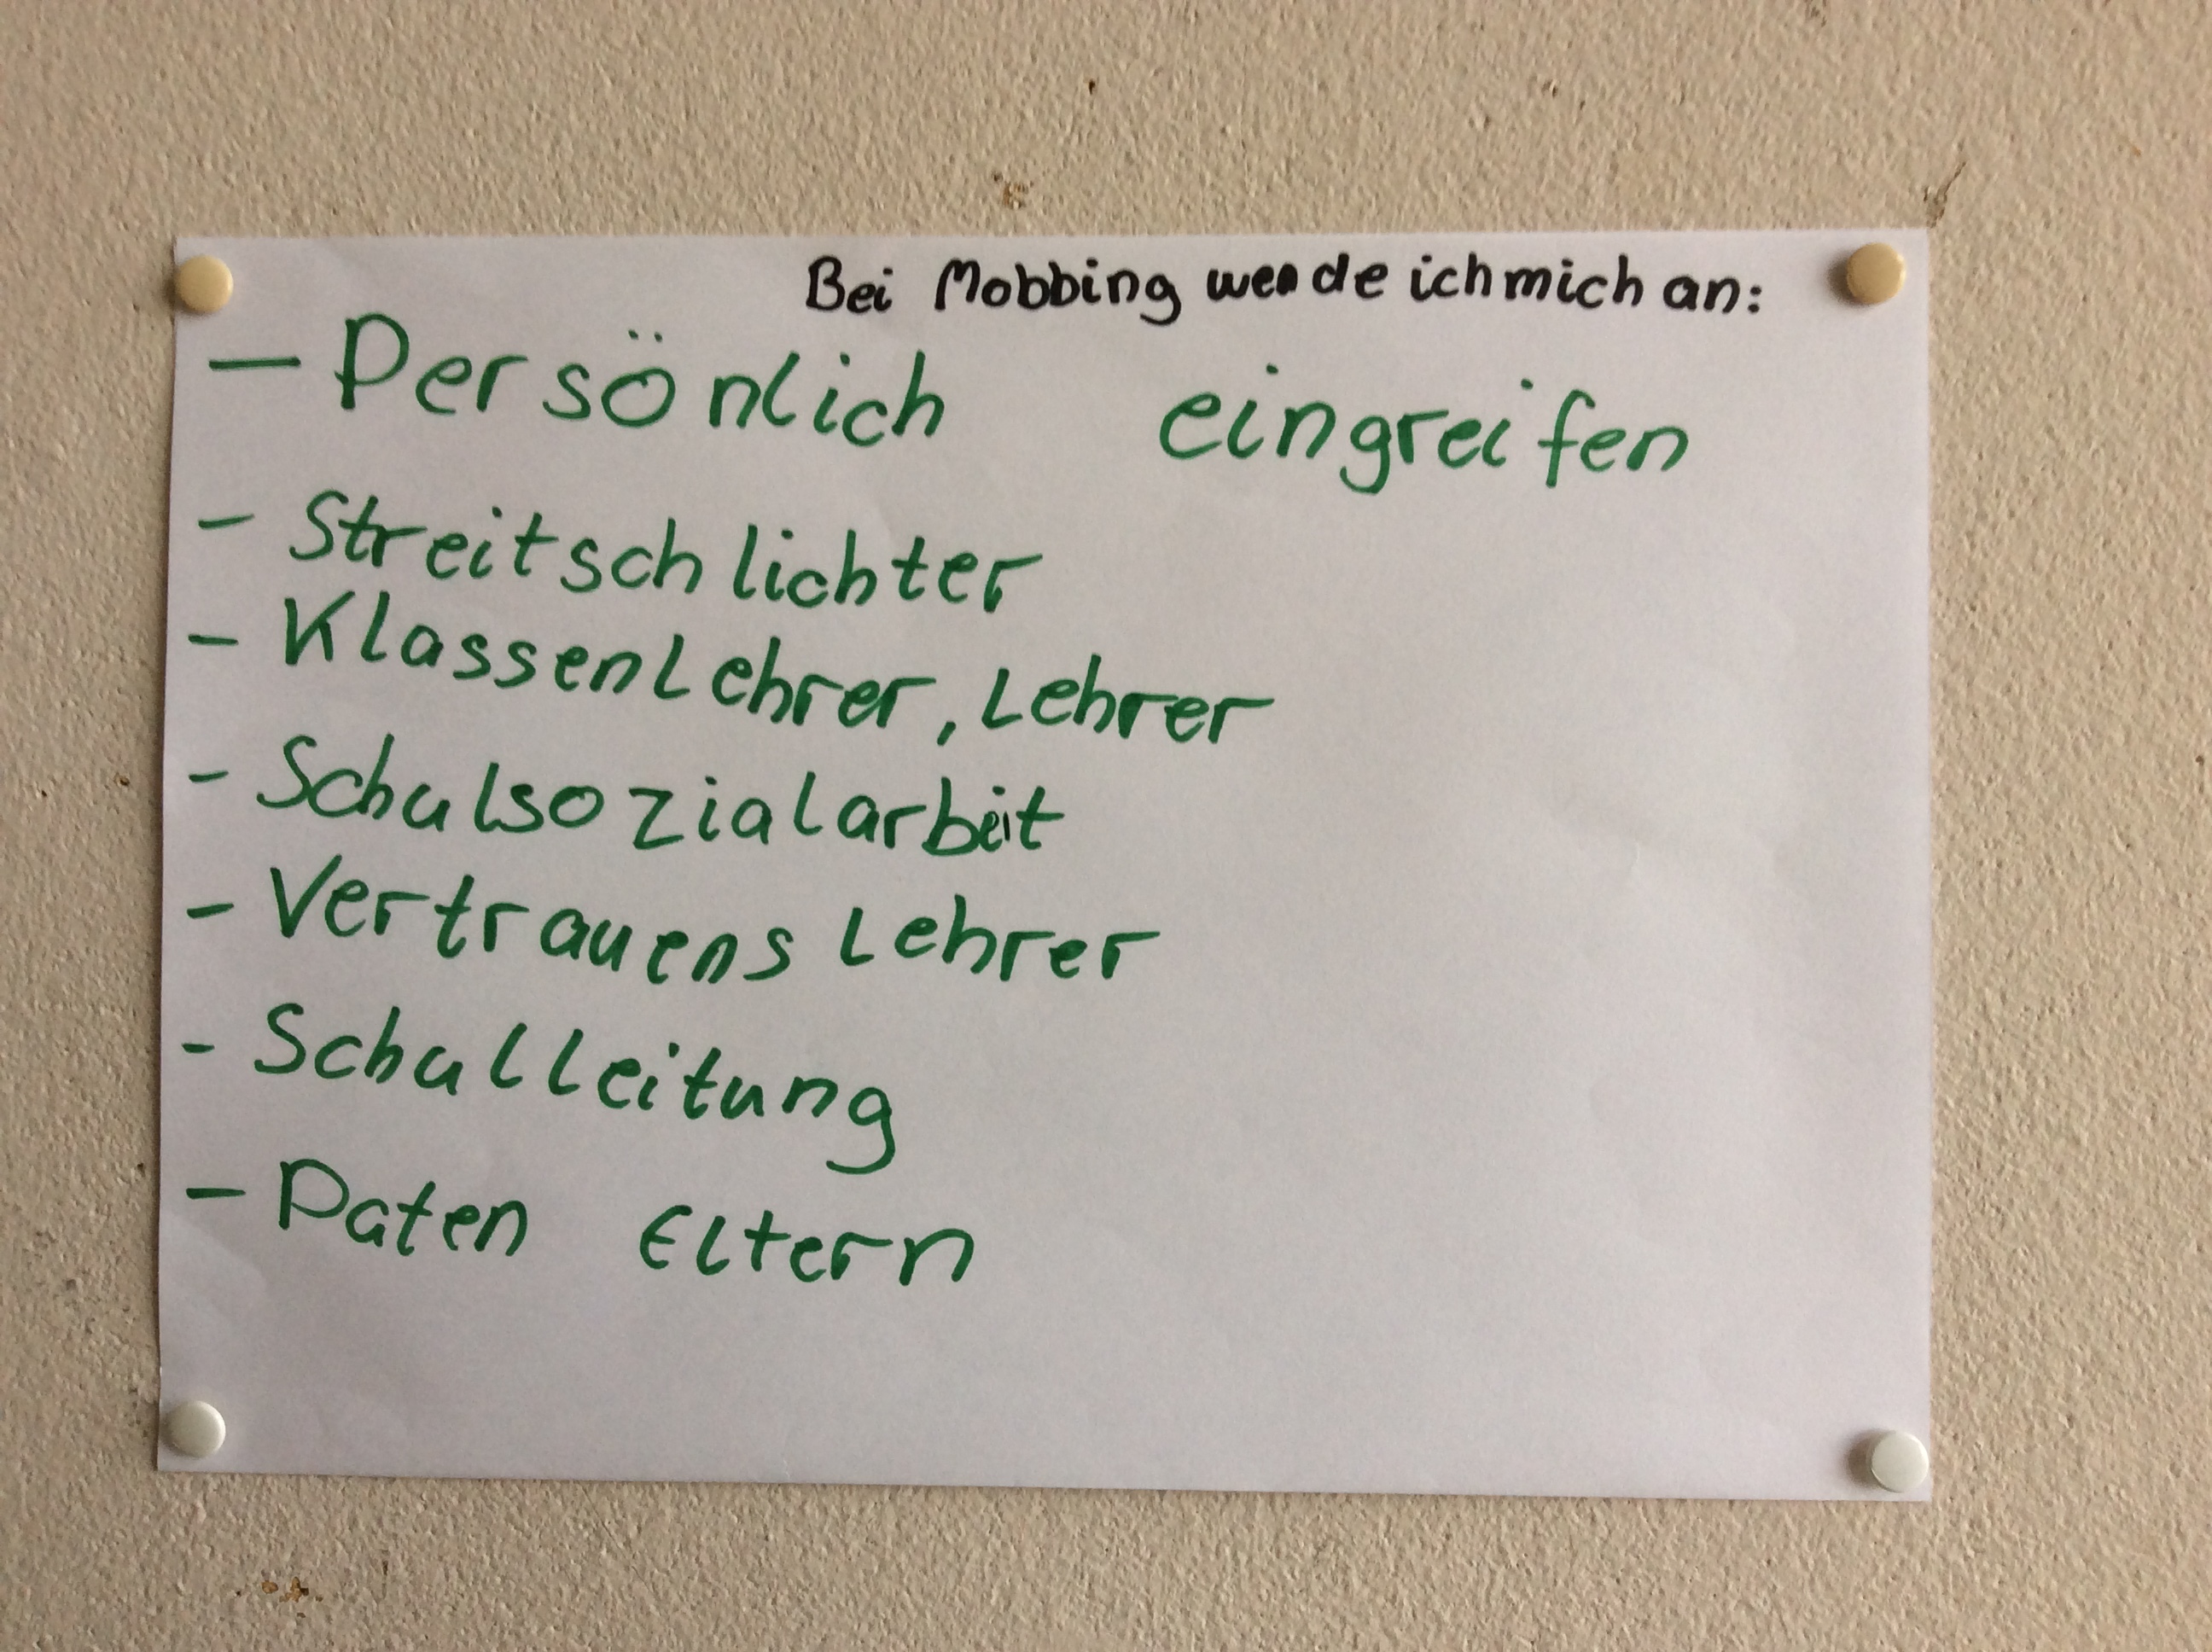 Bei Mobbing wende ich mich an:
- Persönlich eingreifen
- Streitschlichter
- Klassenlehrer, Lehrer
- Schulsozialarbeit
- Vertrauenslehrer
- Schulleitung
- Paten Eltern